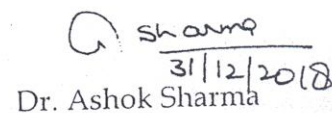 Sharma
31/12/2018
Dr. Ashok Sharma